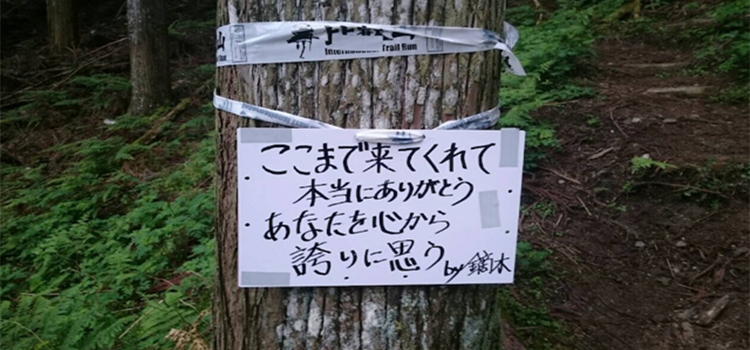 比叡山
International Trail Run
山
ここまで来てくれて
本当にありがとう
あなたを心から
誇りに思う by 鏑木